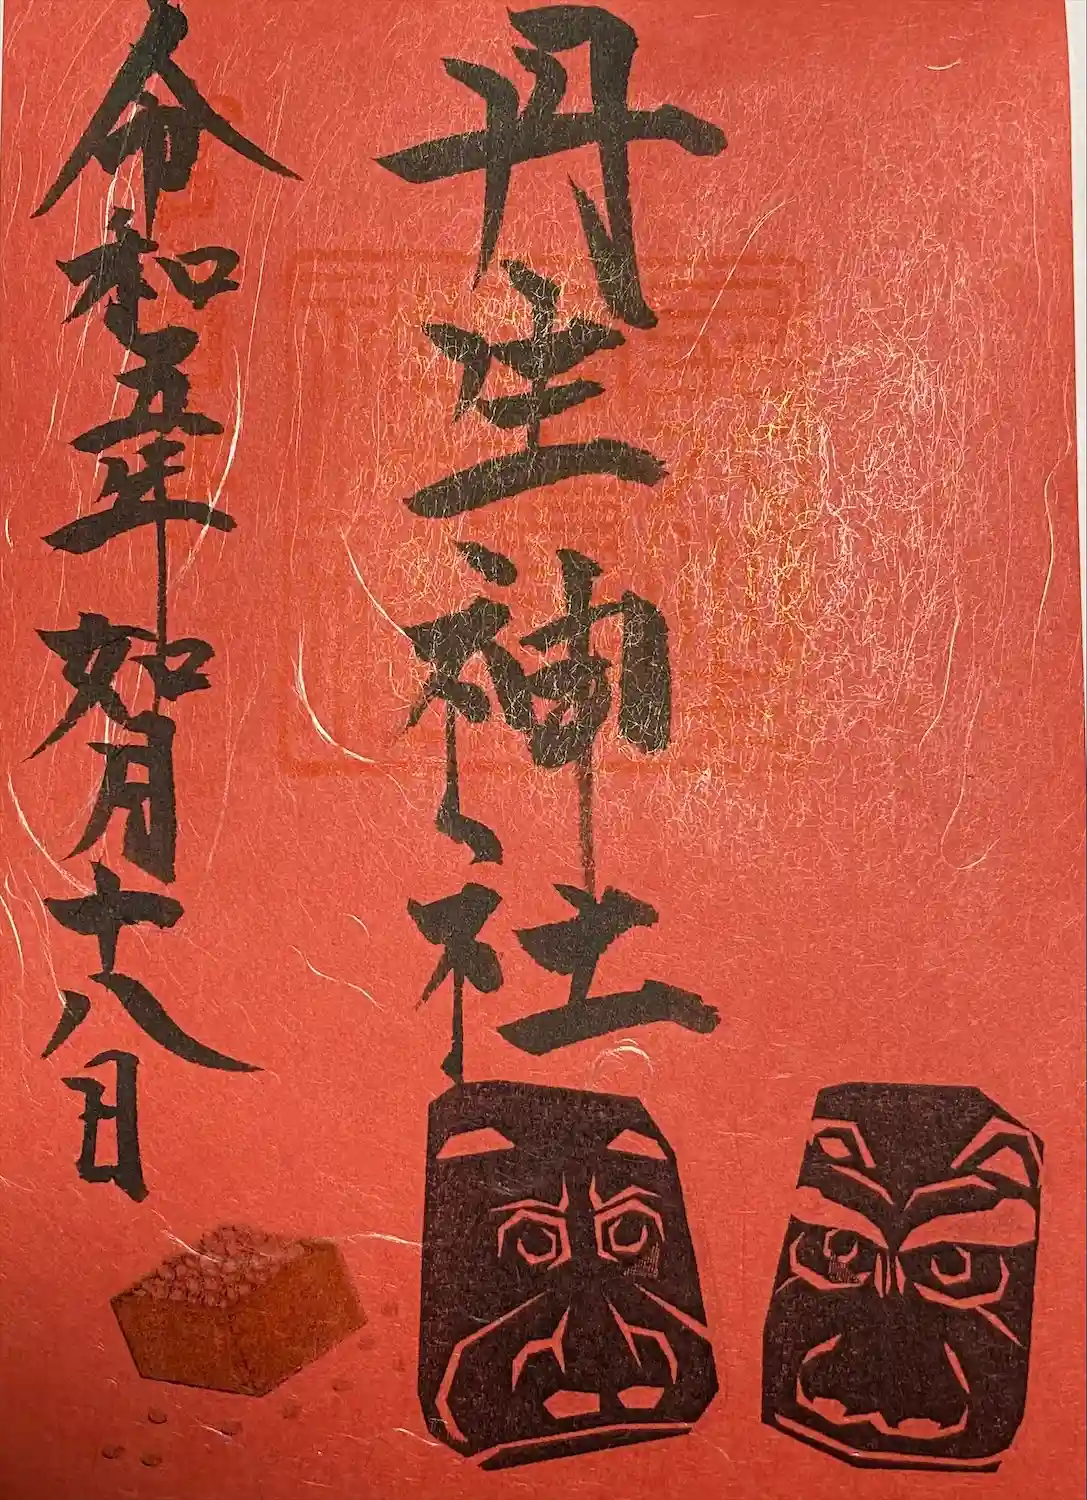 丹生神社
令和五年如月十八日